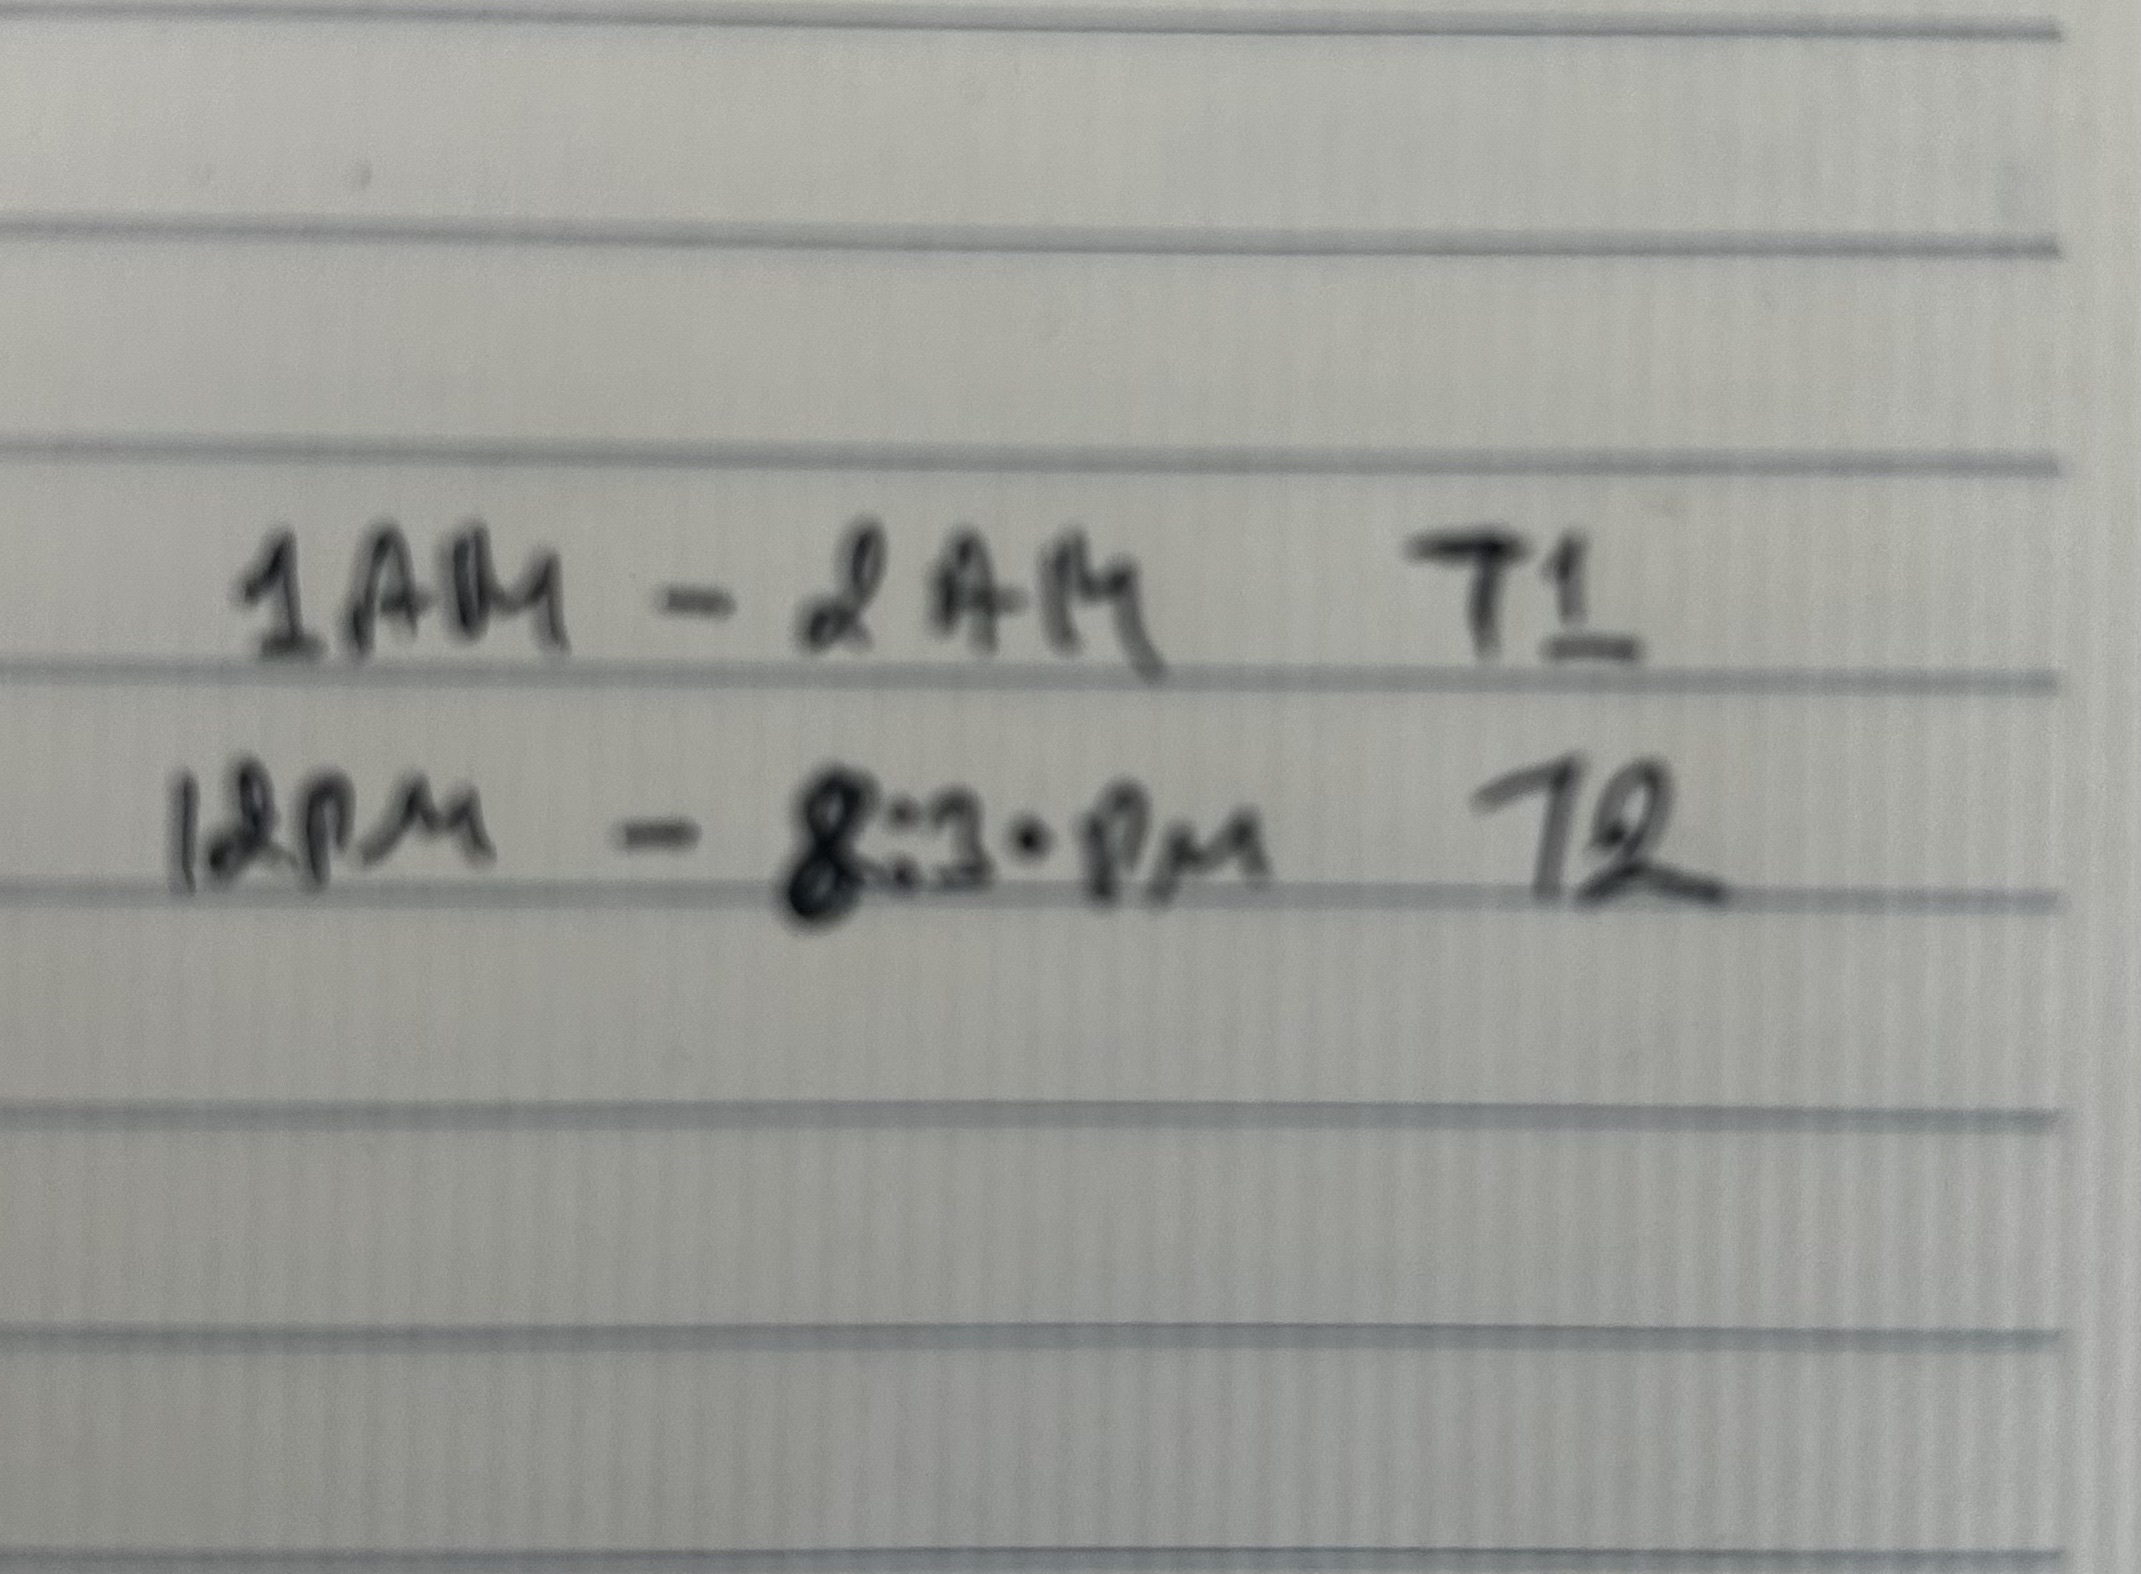 1AM - 2AM T1
12PM - 8:30 PM T2